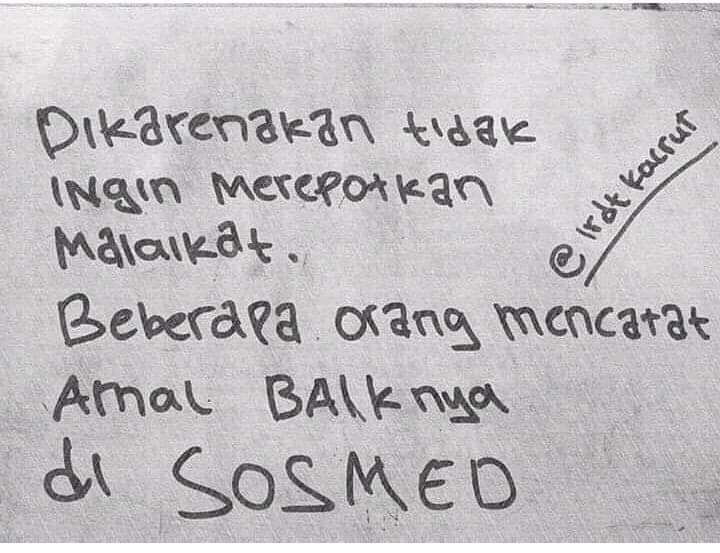 Dikarenakan tidak
INgin Merepotkan
Malaikat.
Beberapa orang mencatat
Amal BAIknya
di SOSMED